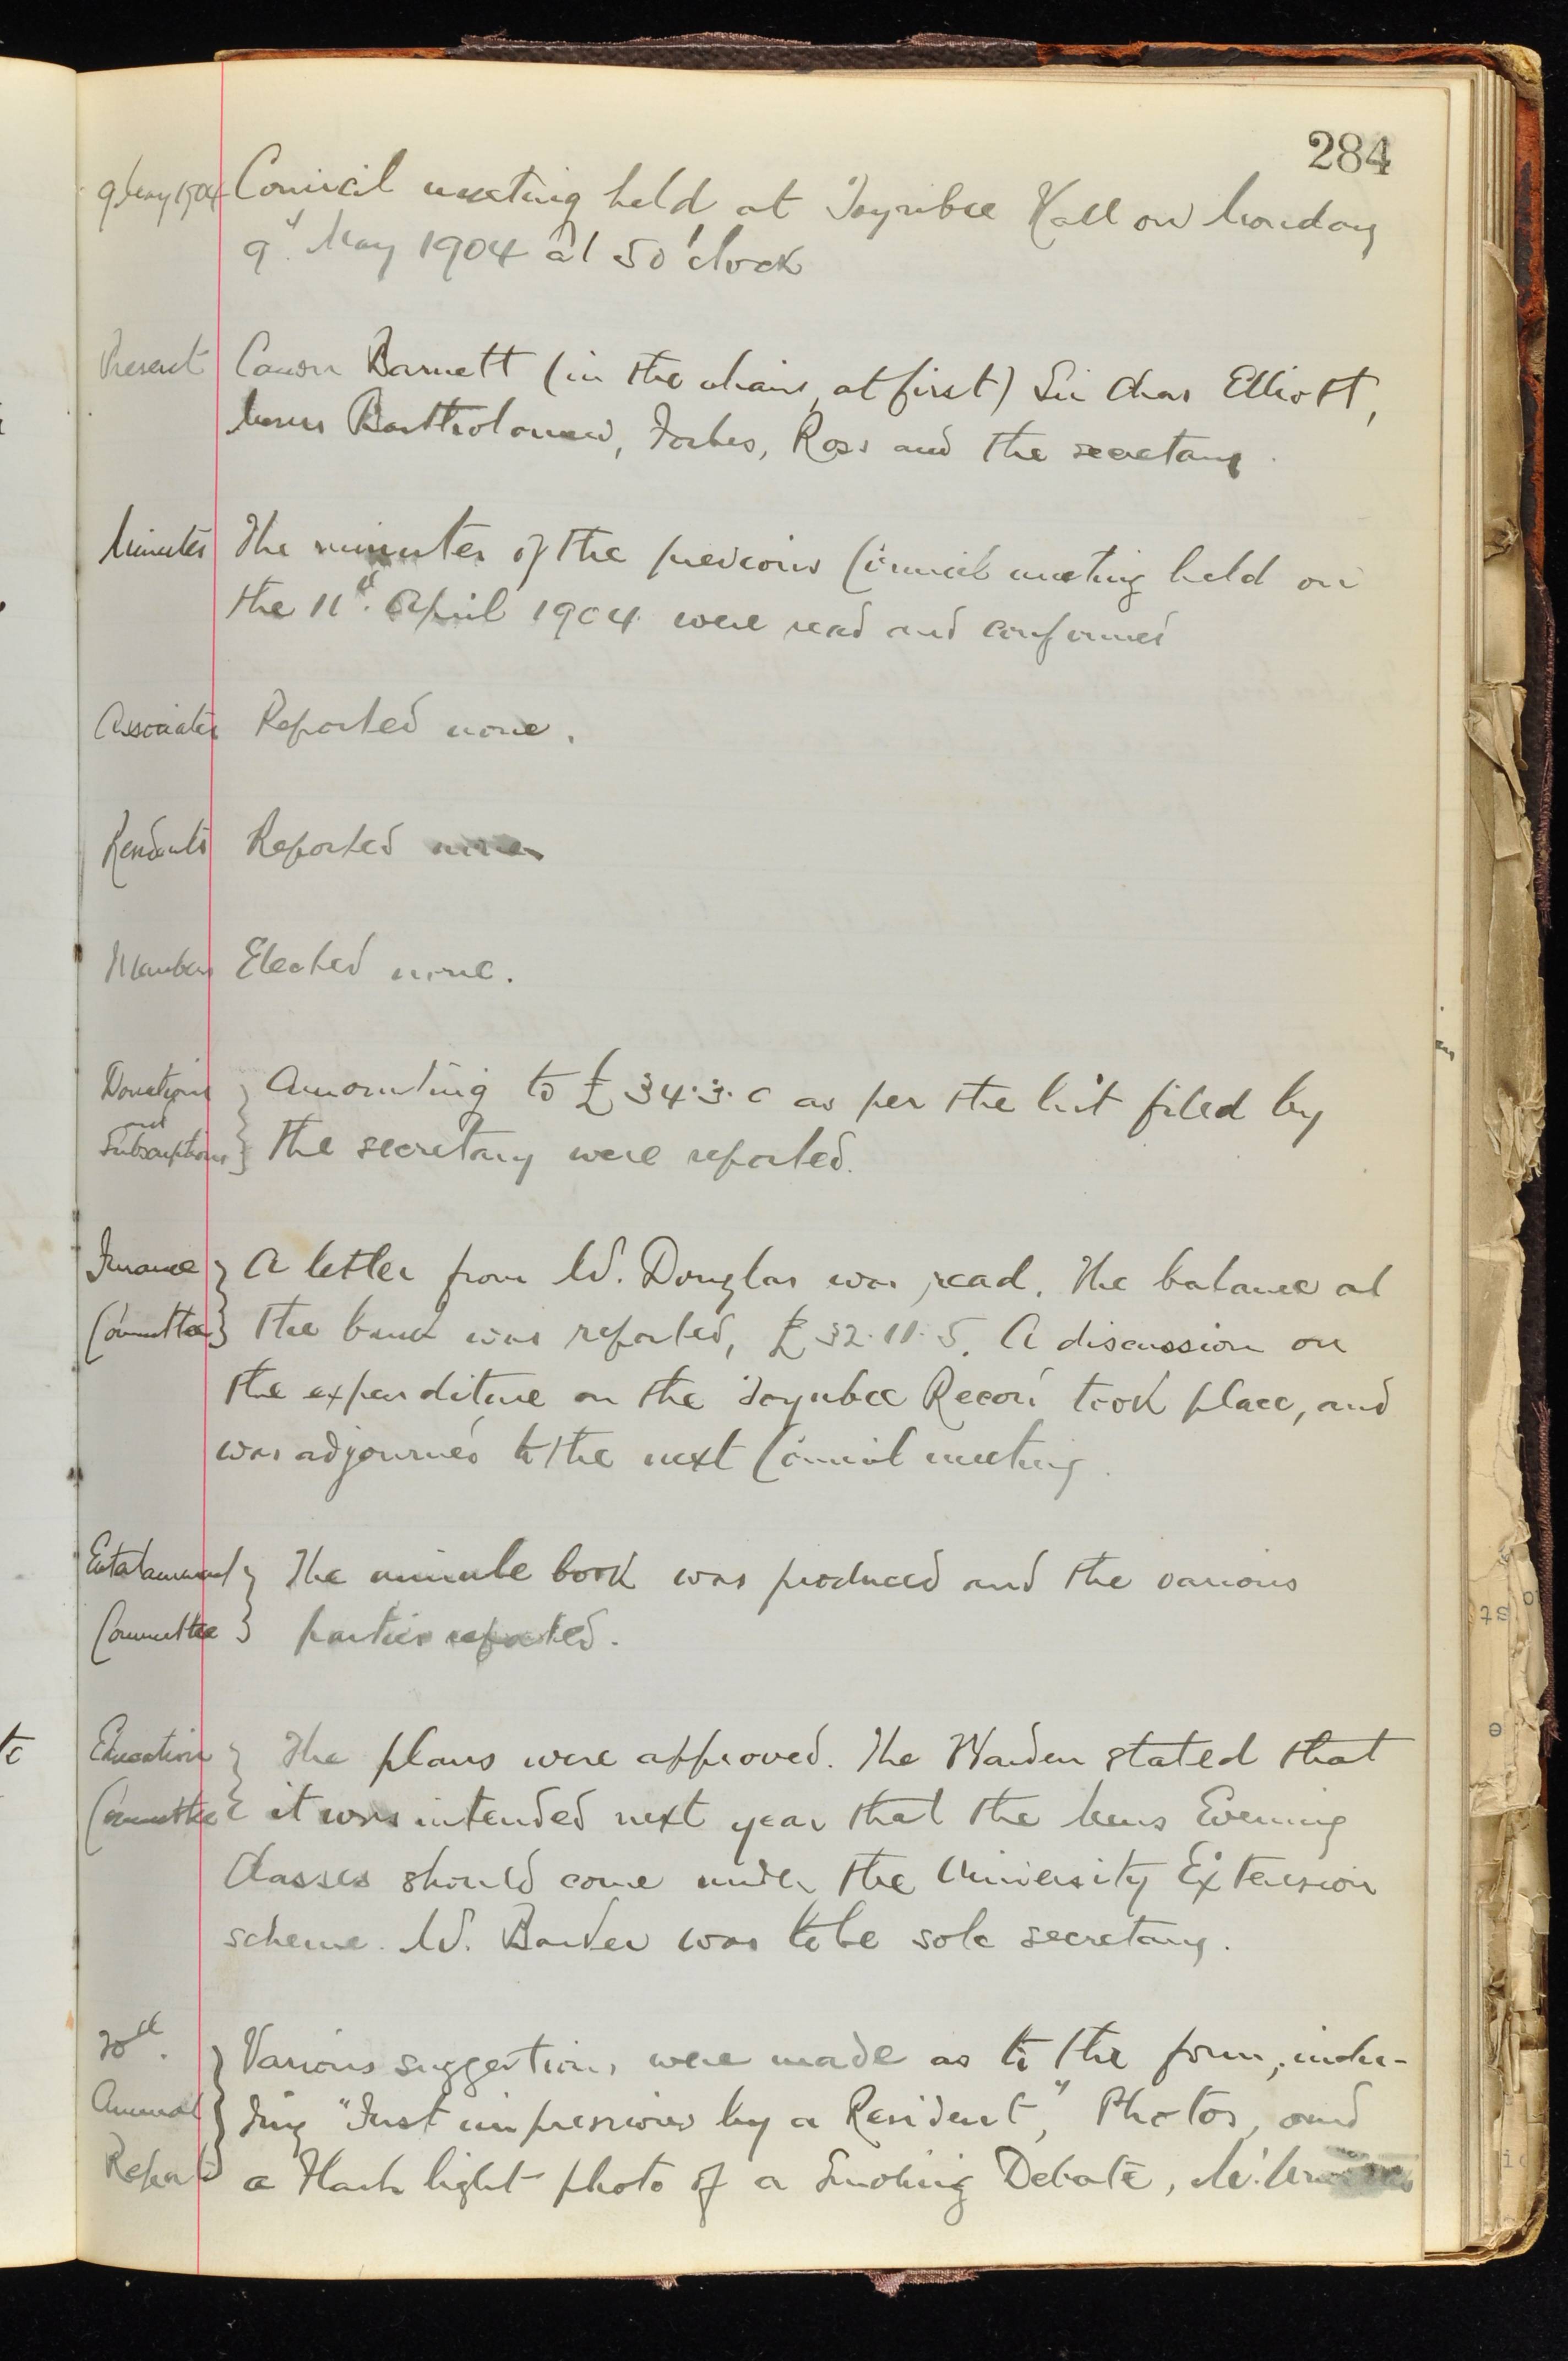 284
9 May 1904 Council meeting held at Toynbee Hall on Monday
9th May 1904 at 5 o'clock
Present Canon Barnett (in the chair, at first) Sir Chas Elliott,
Messrs Bartholomew, Forbes, Ross and the secretary.
Minutes The minutes of the previous Council meeting held on
the 11th. April 1904 were read and confirmed
Associates Reported none.
Residents Reported none
Members Elected none.
Donations Amounting to £34.3.0 as per the list filed by
and
Subscriptions the secretary were reported.
Finance A letter from Mr. Douglas was read. The balance at
Committee the bank was reported, £32.11.5. A discussion on
the expenditure on the Toynbee Record took place, and
was adjourned to the next Council meeting.
Entertainment The minute book was produced and the various
Committee parties reported.
Education The plans were approved. The Warden stated that
Committee it was intended next year that the Mens Evening
Classes should come under the University Extension
scheme. Mr. Barker was to be sole secretary.
20th. Various suggestions were made as to the form, inclu-
Annual ding "First impressions by a Resident," Photos, and
Report a Flash light photo of a Smoking Debate, Mr.